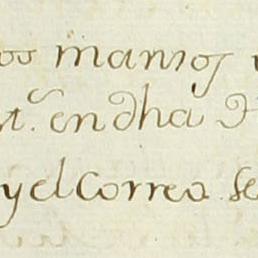 os manos
t.ᵉ en dha
y el Correo se